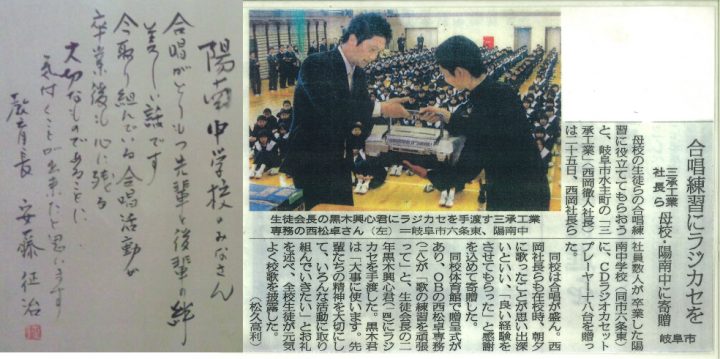 陽南中学校のみなさん
合唱がとりもつ先輩と後輩の絆
美しい話です
今取り組んでいる合唱活動が
卒業後も心に残る
大切なものであることに
気付くことが出来たと思います
教育長 安藤征治
合唱練習にラジカセを
三承工業
社長ら 母校・陽南中に寄贈
岐阜市
母校の生徒らの合唱練
習に役立ててもらおう
と、岐阜市水主町の「三
承工業」(西岡徹人社長)
は二十五日、西岡社長ら
社員数人が卒業した陽
南中学校(同市六条東)
に、CDラジカセット
プレーヤー十八台を贈っ
た。
同校は合唱が盛ん。西
岡社長らも在校時、朝夕
に歌ったことが思い出深
いといい、「良い経験を
させてもらった」と感謝
を込めて寄贈した。
同校体育館で贈呈式が
あり、OBの西松卓専務
が「歌の練習を頑張
って」と、生徒会長の二
年黒木興心君にラジ
カセを手渡した。黒木君
は「大事に使います。先
輩たちの精神を大切にし
て、いろんな活動に取り
組んでいきたい」とお礼
を述べ、全校生徒が元気
よく校歌を披露した。
(松久高利)
生徒会長の黒木興心君にラジカセを手渡す三承工業
専務の西松卓さん(左)=岐阜市六条東、陽南中で